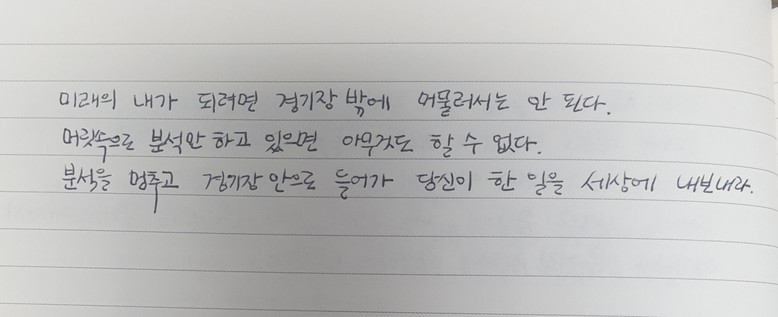 미래의 내가 되려면 경기장 밖에 머물러서는 안 된다.
머릿속으로 분석만 하고 있으면 아무것도 할 수 없다.
분석을 멈추고 경기장 안으로 들어가 당신이 한 일을 세상에 내보내라.